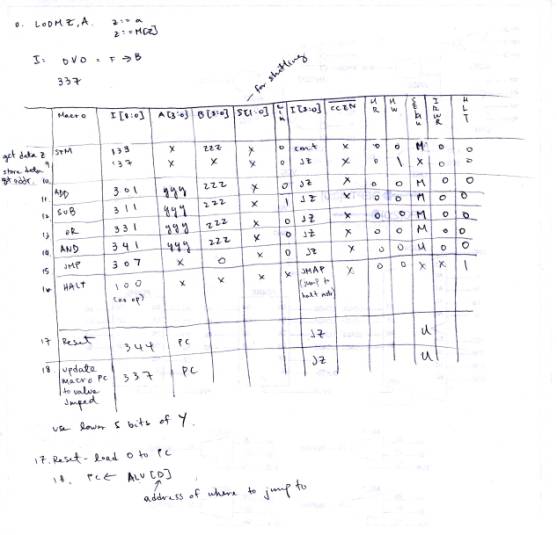 0. LODM Z, A. z:= a
z:= M[z]
I: OVO = F → B
337
for shifting
Macro I[8:0] A[3:0] B[3:0] S[1:0] I[3:0] CCEN MR MW HLT
get data z STM 133 x zzz x 0 cont x 0 0 M 0 0
store data 9. 137 x x x 0 JZ x 0 1 x 0 0
get addr. 10.
11. ADD 301 yyy zzz x 0 JZ x 0 0 M 0 0
12. SUB 311 yyy zzz x 1 JZ x 0 0 M 0 0
13. OR 331 yyy zzz x 0 JZ x 0 0 M 0 0
AND 341 yyy zzz x 0 JZ x 0 0 M 0 0
15 JMP 307 x 0 x 0 JZ x 0 0 U 0 0
16. HALT 100 x x x x JMAP x 0 0 x x 1
(no op) (jump to halt
17 Reset 344 PC JZ U
18. update 337 PC JZ U
Macro PC
to value
Jmped
use lower 5 bits of Y.
17. Reset - load 0 to PC
18. PC ← ALU [D]
address of where to jump to